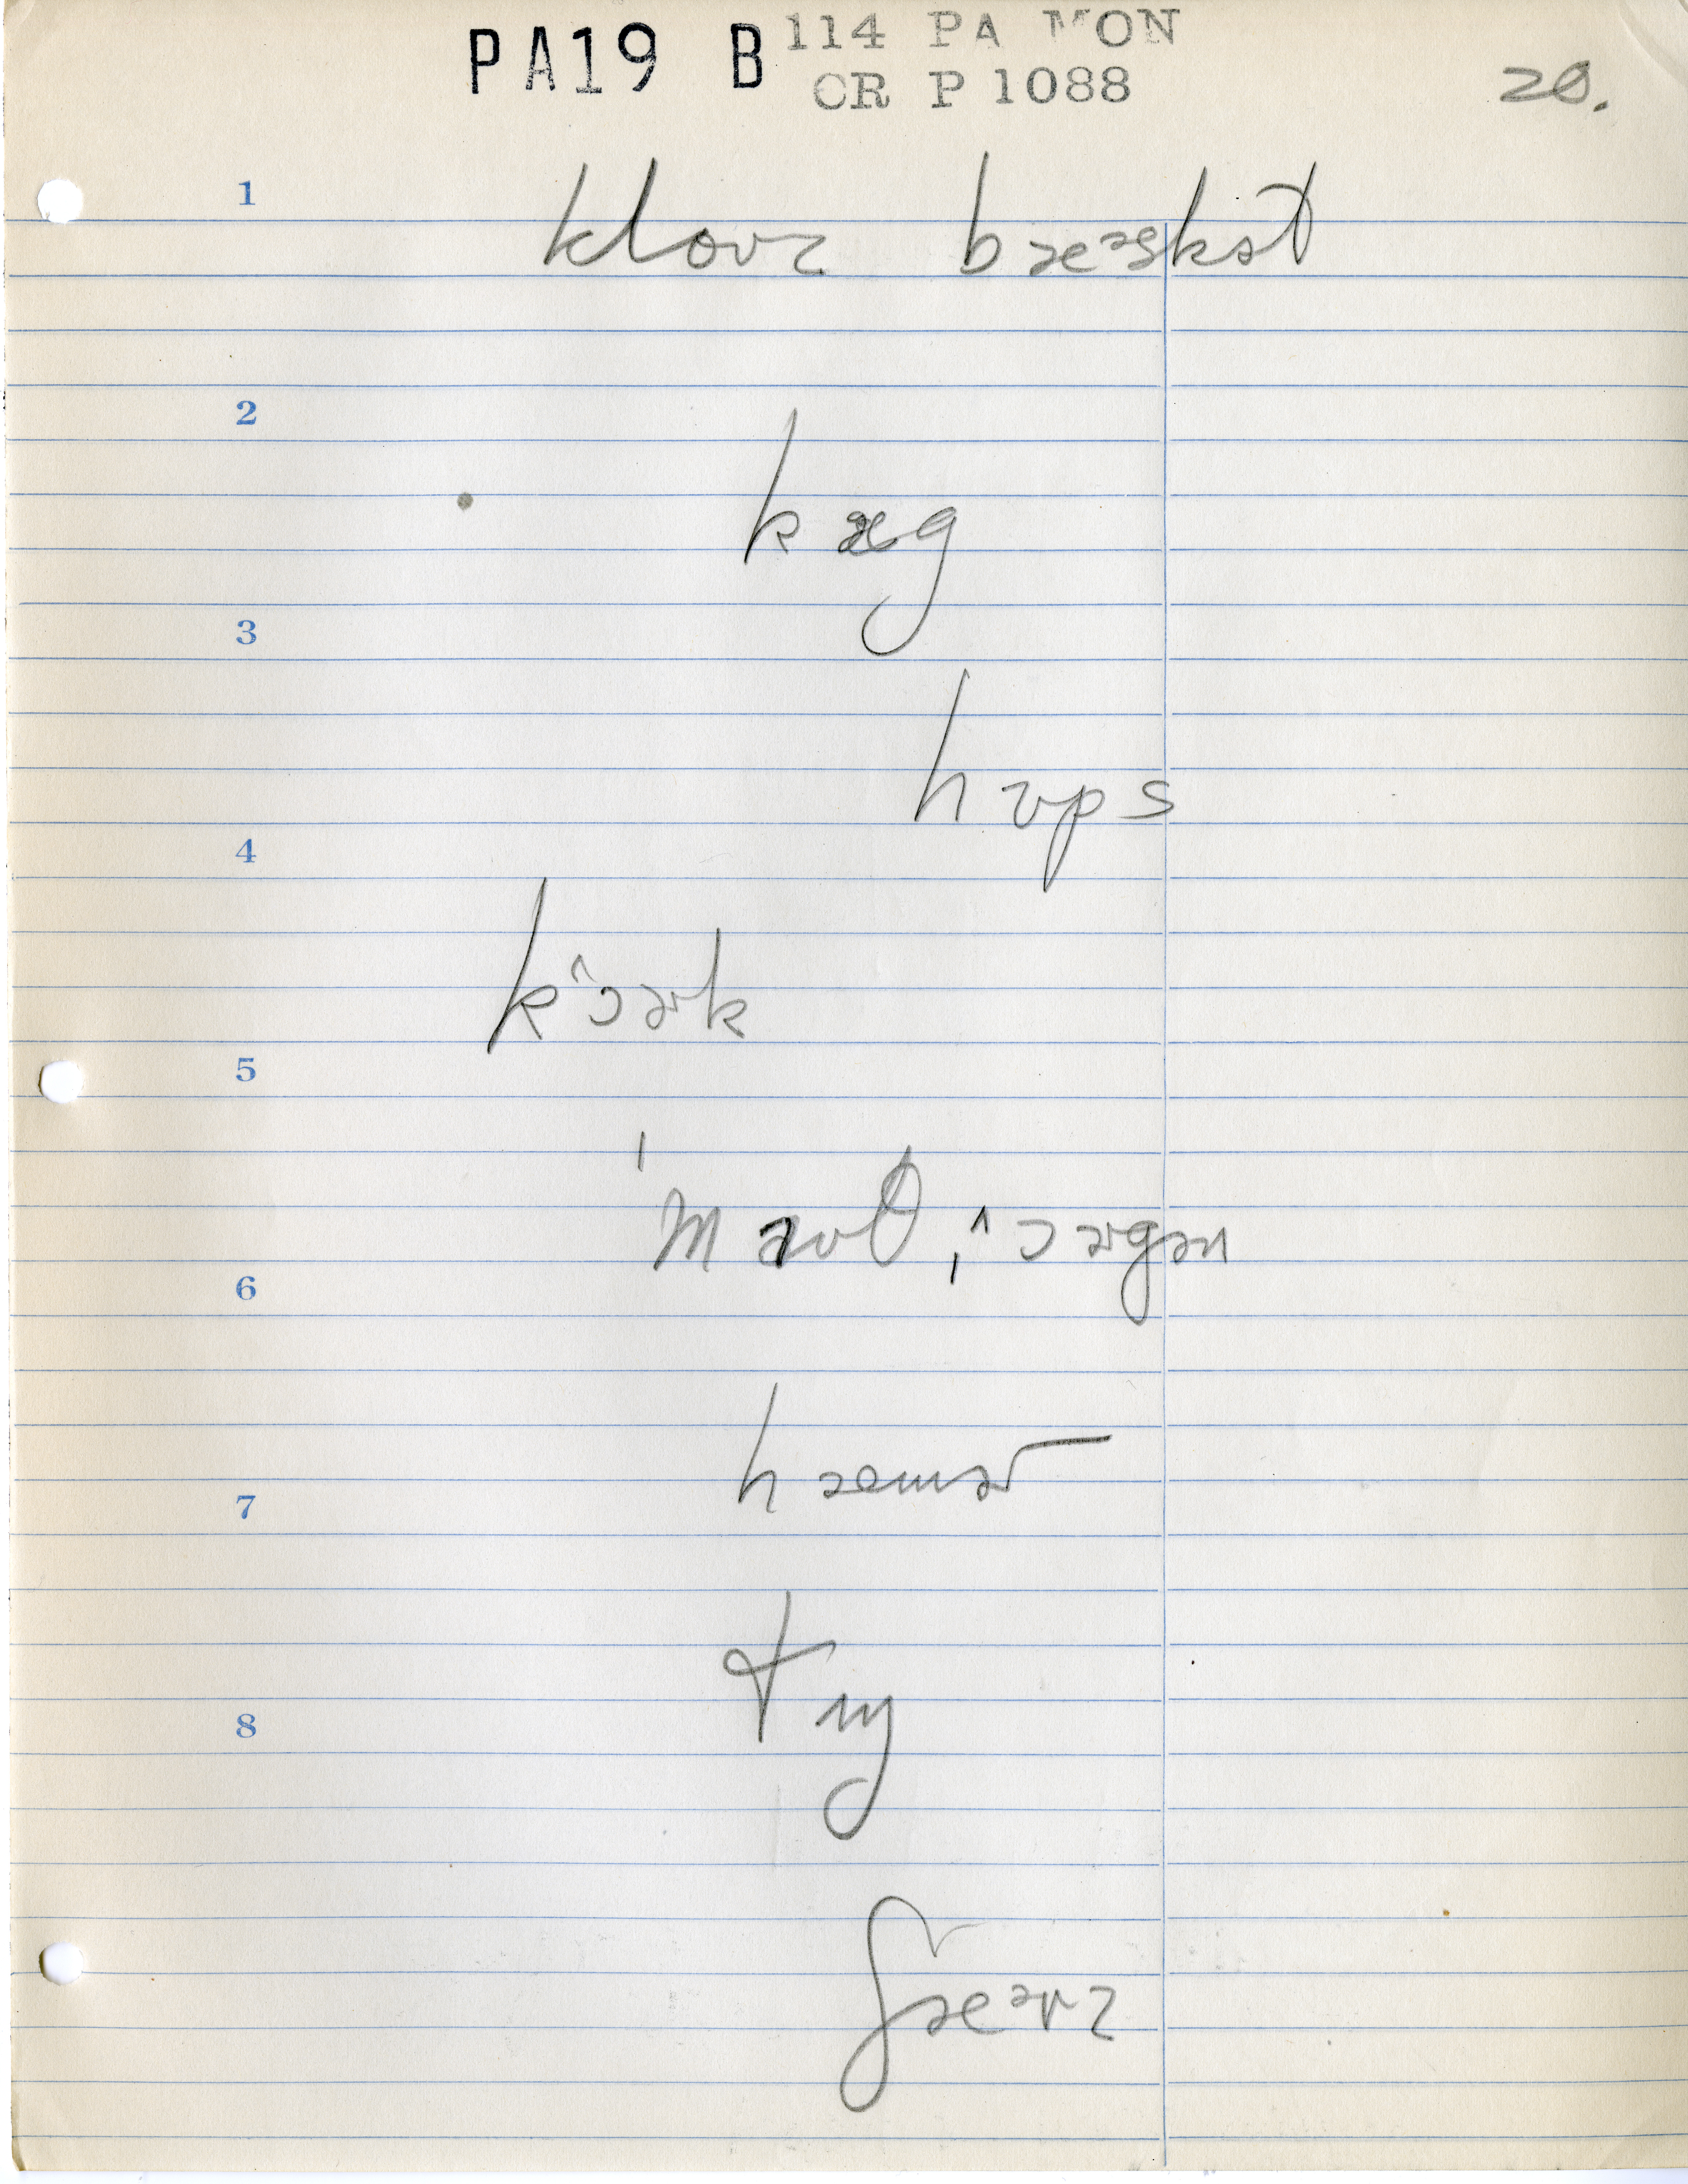 PA19 B 114 PA MON
CR P 1088
20.
1
klouz bæᵊskət
2
kæg
3
hɒps
4
k˄ɔɚk
5
ˈmaʊθˌ˄ɔɚgən
6
hæmɚ
7
tɪŋ
8
ʃæɚz